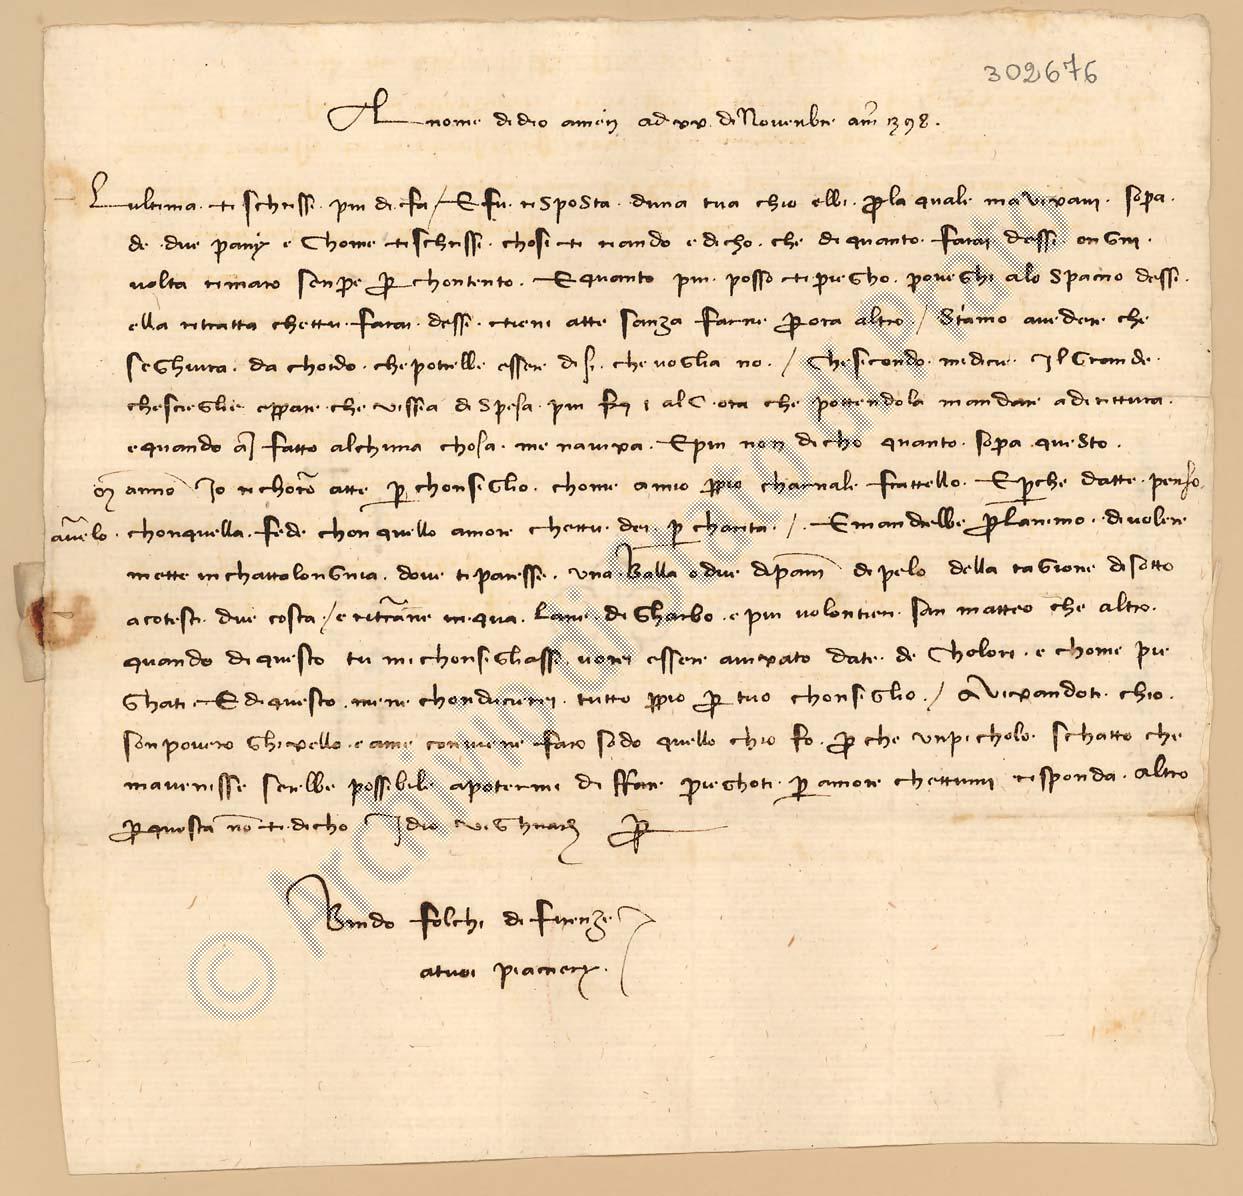 302676
Al nome di dio amen ad xx di Novenbre am 1398.
L ultima. ti schrissi. piu di. fa / E fu. risposta. duna tua chio ebbi. per la quale mavixavi. sopra.
de. due panni e Chome ti schrissi. chosi ti rimando e dicho. che di quanto. farai dessi ongni.
volta rimaro senpre per chontento. E quanto piu. posso ti priegho. proveghi alo spacio dessi.
ella ritratta chettu. farai. dessi. tieni atte sanza farne per ora altro. / Stiamo avedere che
seghuira. da chordo. che potrebbe essere di si. che voglia no. / Che secondo. me dicie. il Grande.
che sciegliere appare. che vi ssia di spesa. piu 1 al C. ora che pottendola mandare a dirittura.
e quando ai fatto alchuna chosa. me navixa. E piu non dicho quanto. sopra questo.
anno Io richorro atte per chonsiglio. chome a mio proprio charnale frattello. E perche datte. penso
averlo. chonquella. fede chon quello amore chettu. dei. per charita. /. E mandrebbe per lanimo. di volere
mette in chattalongnia. dove ti paresse. una Balla o due di panni di pelo della ragione di sotto
a cotesti. due costa. / e ritrarne in qua. Lane. di Gharbo. e piu volontieri. san matteo che altro.
quando di questo tu mi chonsigliassi vorei essere avixato date. de Cholori. e chome pie
ghati. E di questo. mene chonduciere. tutto proprio per tuo chonsiglio. / Avixandoti. chio.
son povero ghixello. e ame conviene faro sodo quello chio fo. per che un picholo. schatto che
mavenisse serebbe possibile a potermi di sffare prieghoti. per amore chettumi risponda. Altro
per questa non ti dicho Idio vi ghuardi per
Bindo folchi di firenze
a tuoi piacieri.
© Archivio di Stato di Prato